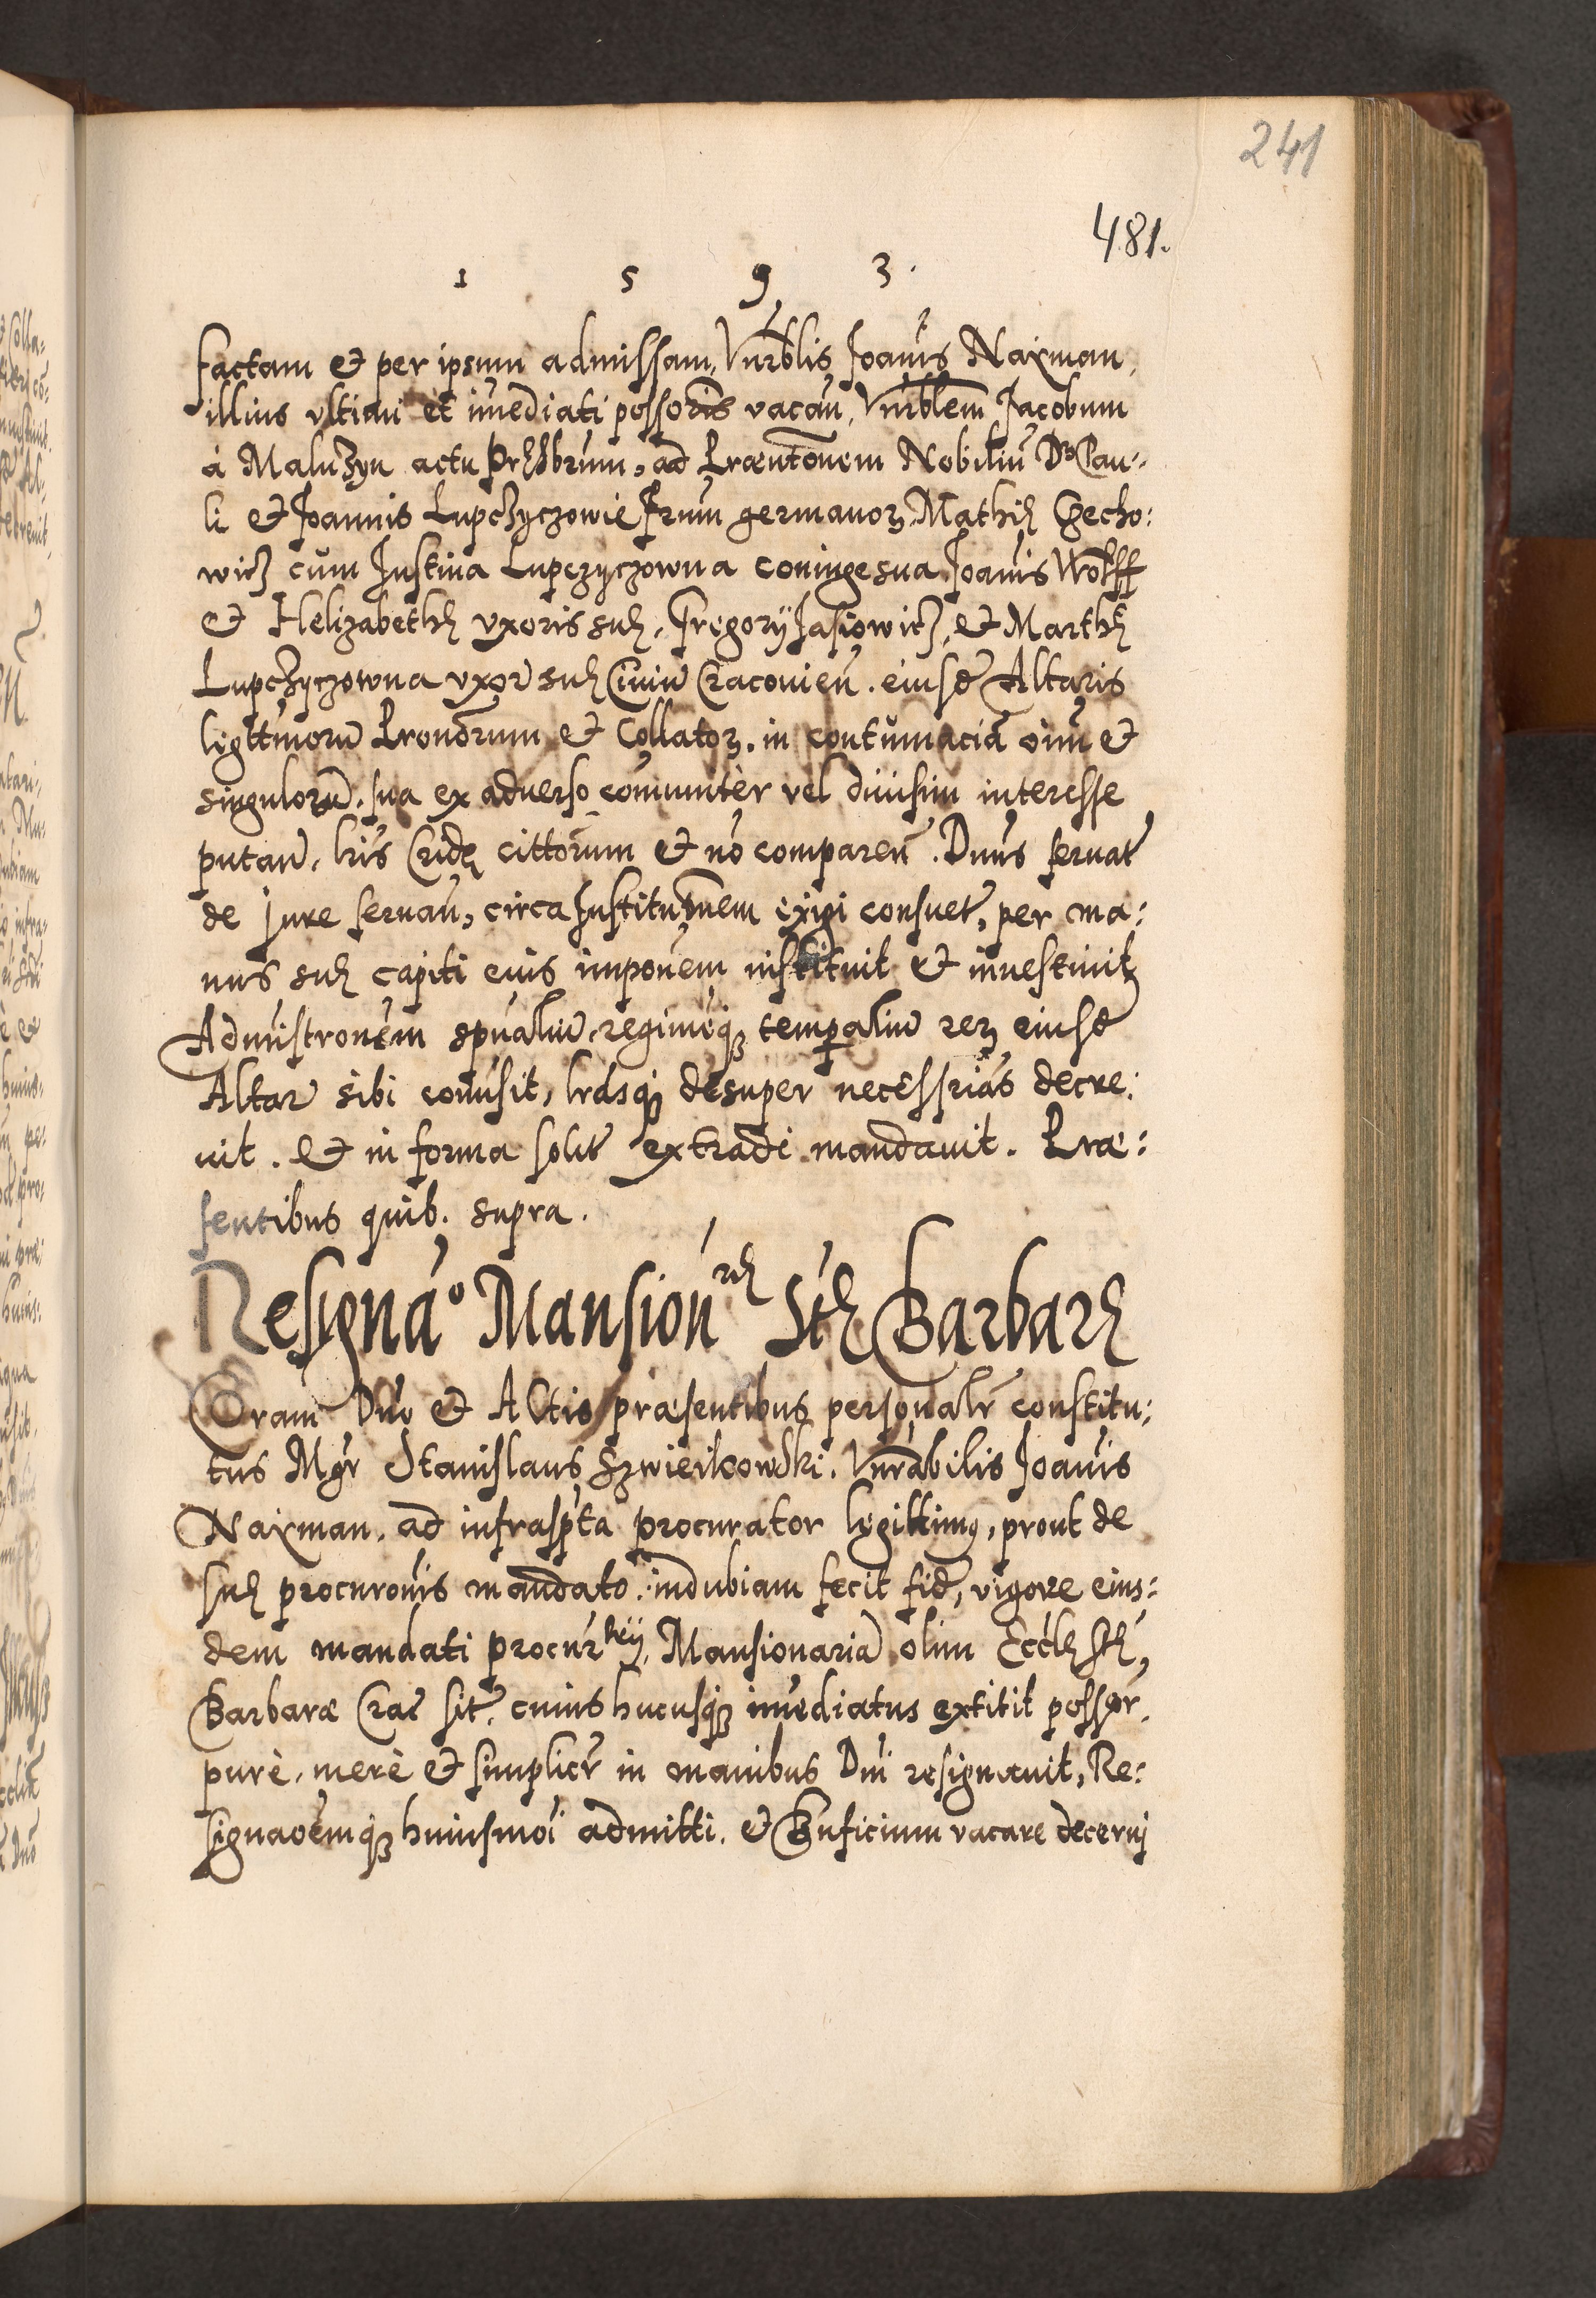 241
481.
1 5 9 3.
factam et per ipsum admissam, Vnrblis Joanis Naxman,
illius vltimi et imediati possoris vacan, Vnrblem Jacobum
à Maluszyn actu Presbrum, ad Præntonem Nobiliu Do Pau:
li et Joannis Lupczyczowie frum germanor Mathię Czecho:
wicz cum Justina Lupczyczowna coniuge sua Joanis Wolff
et Helizabethę vxoris suę, Gregorij Jasiowicz, et Marthę
Lupczyczowna vxor suę Ciuiu Cracouien. eiusd Altaris
legittimoru Pronorum et Collator. in contumacia oim et
singuloru. sua ex aduerso comuniter vel diuisim interesse
putan, lris Cridę cittorum et no comparen. Dnus seruat
de jure seruan, circa Institutnem exigi consuet, per ma:
nus suę capiti eius imponem instituit et inuestiuit
Admistronem spualiu, regimeq temporaliu rer eiusd
Altar sibi comisit, lrasq desuper necessrias decre:
uit. et in forma solit extradi mandauit. Præ:
sentibus quib. supra.
Resignao Mansionrę Stę Barbarę
Coram Dno et Actis præsentibus personalr constitu:
tus Mgr Stanislaus Szwierkowski. Vnrabilis Joanis
Naxman, ad infraspta procurator legittimus, prout de
suę procuronis mandato. indubiam fecit fid, vigore eius:
dem mandati procurrij, Mansionaria olim Ecclę Stę,
Barbaræ Crac sit, cuius hucusq imediatus extitit possor,
purè, merè et simplicr in manibus Dni resignauit, Re:
signaoemq huiusmoi admitti. et Bnficium vacare decerni